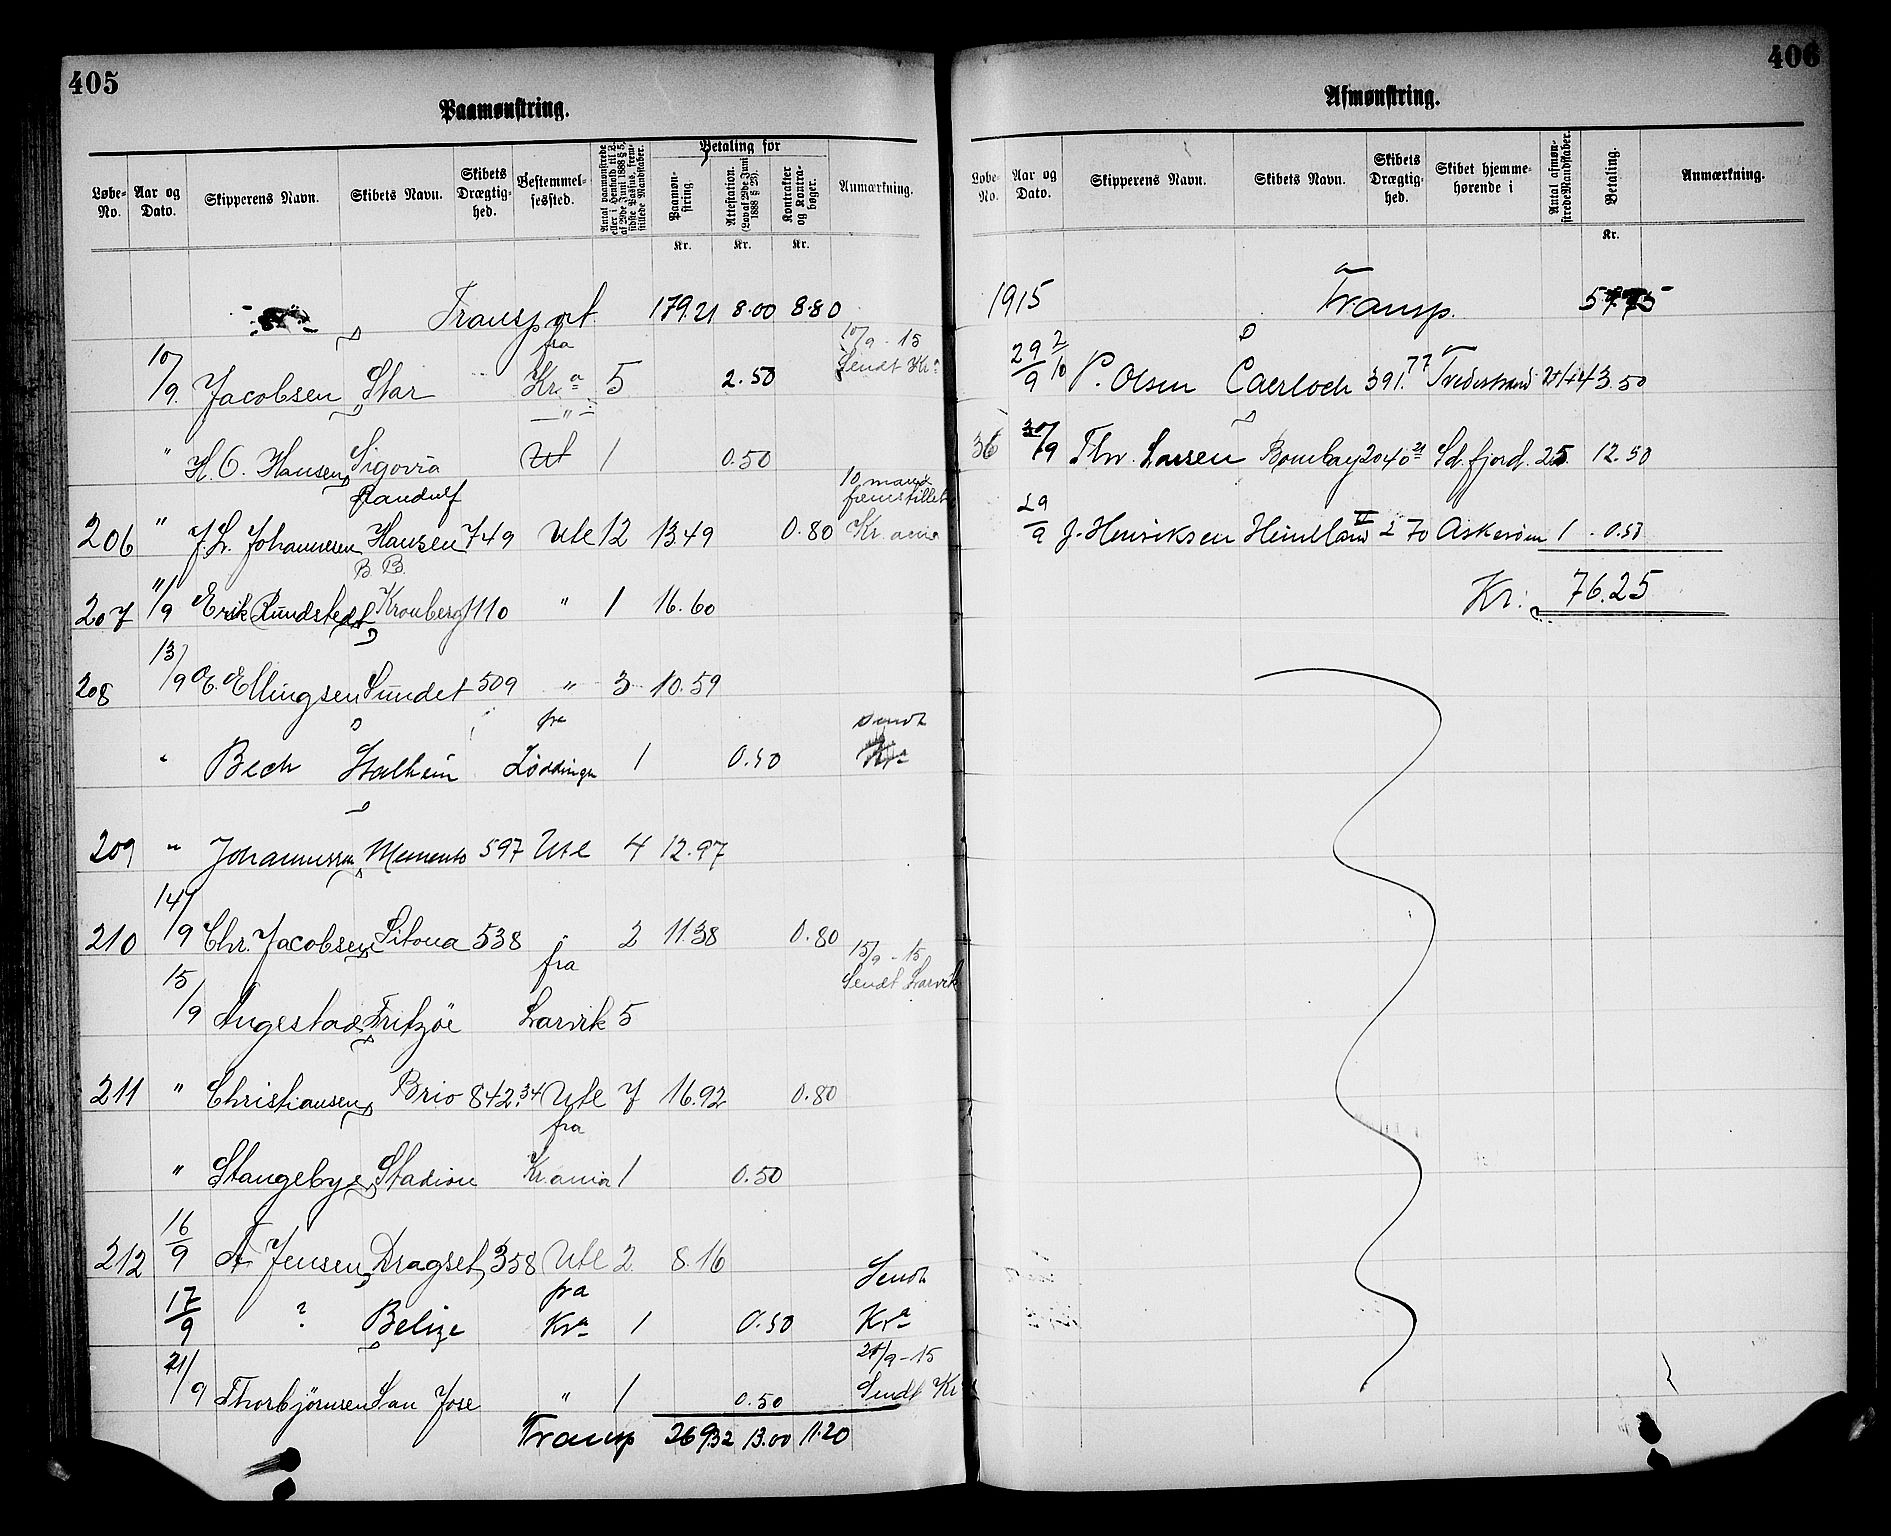 405
Paamønstring.
Løbe-No. Aar og Dato. Skipperens Navn. Skibets Navn. Skibets Drægtighed. Bestemmelsessted. Antal paamønstrede eller i Henhold til L. af 29de Juni 1888 § 5, sidste Passus, fremstillede Mandskaber. Betaling for Paamønstring. Attestation. (Lov af 29de Juni 1888 § 25). Kontrakter og Kontrabøger. Anmærkning.
Kr. Kr. Kr.
Transport 179.21 8.00 8.80
10/9 Jacobsen Star fra Kr.a 5 2.50 10/9-15 Sendt Kr.a
" H. O. Hansen Sigovia " Ut 1 0.50
206 " J. L. Johannesen Randulf Hansen 749 Utl 12 13.49 0.80 10 mand fremstillet Kr.ania
207 11/9 Erik Rundstedt B. B. Kronberg 1110 " 1 16.60
208 13/9 E. Ellingsen Sundet 509 " 3 10.59
" Bech Stalheim fra Lødingen 1 0.50 Sendt Kra
209 " Johannessen Memento 597 Utl 4 12.97
210 14/9 Chr. Jacobsen Sitona 538 " 2 11.38 0.80
15/9 Angestad Fritzöe fra Larvik 5 15/9-15 Sendt Larvik
211 " Christiansen Brio 842.34 Utl 7 16.92 0.80
" Stangebye Stadion fra Kr.ania 1 0.50
212 16/9 A Jensen Dragset 358 Utl 2 8.16
17/9 ? Belize fra Kra 1 0.50 Sendt Kra
21/9 Thorbjörnsen San Jose " 1 0.50 21/9-15 Sendt Kr
Transp 269.32 13.00 11.20
406
Afmønstring.
Løbe-No. Aar og Dato. Skipperens Navn. Skibets Navn. Skibets Drægtighed. Skibet hjemmehørende i Antal afmønstrede Mandskaber. Betaling. Anmærkning.
Kr.
1915 Transp.
29/9 2/10 P. Olsen Caerloch 391.77 Tvedestrand 3.50
36 30/9 Thv. Larsen Bombay 2040 Sd.fjord. 25 12.50
29/9 J. Henriksen Heimland II 270 Askerøen 1 0.50
Kr. 76.25